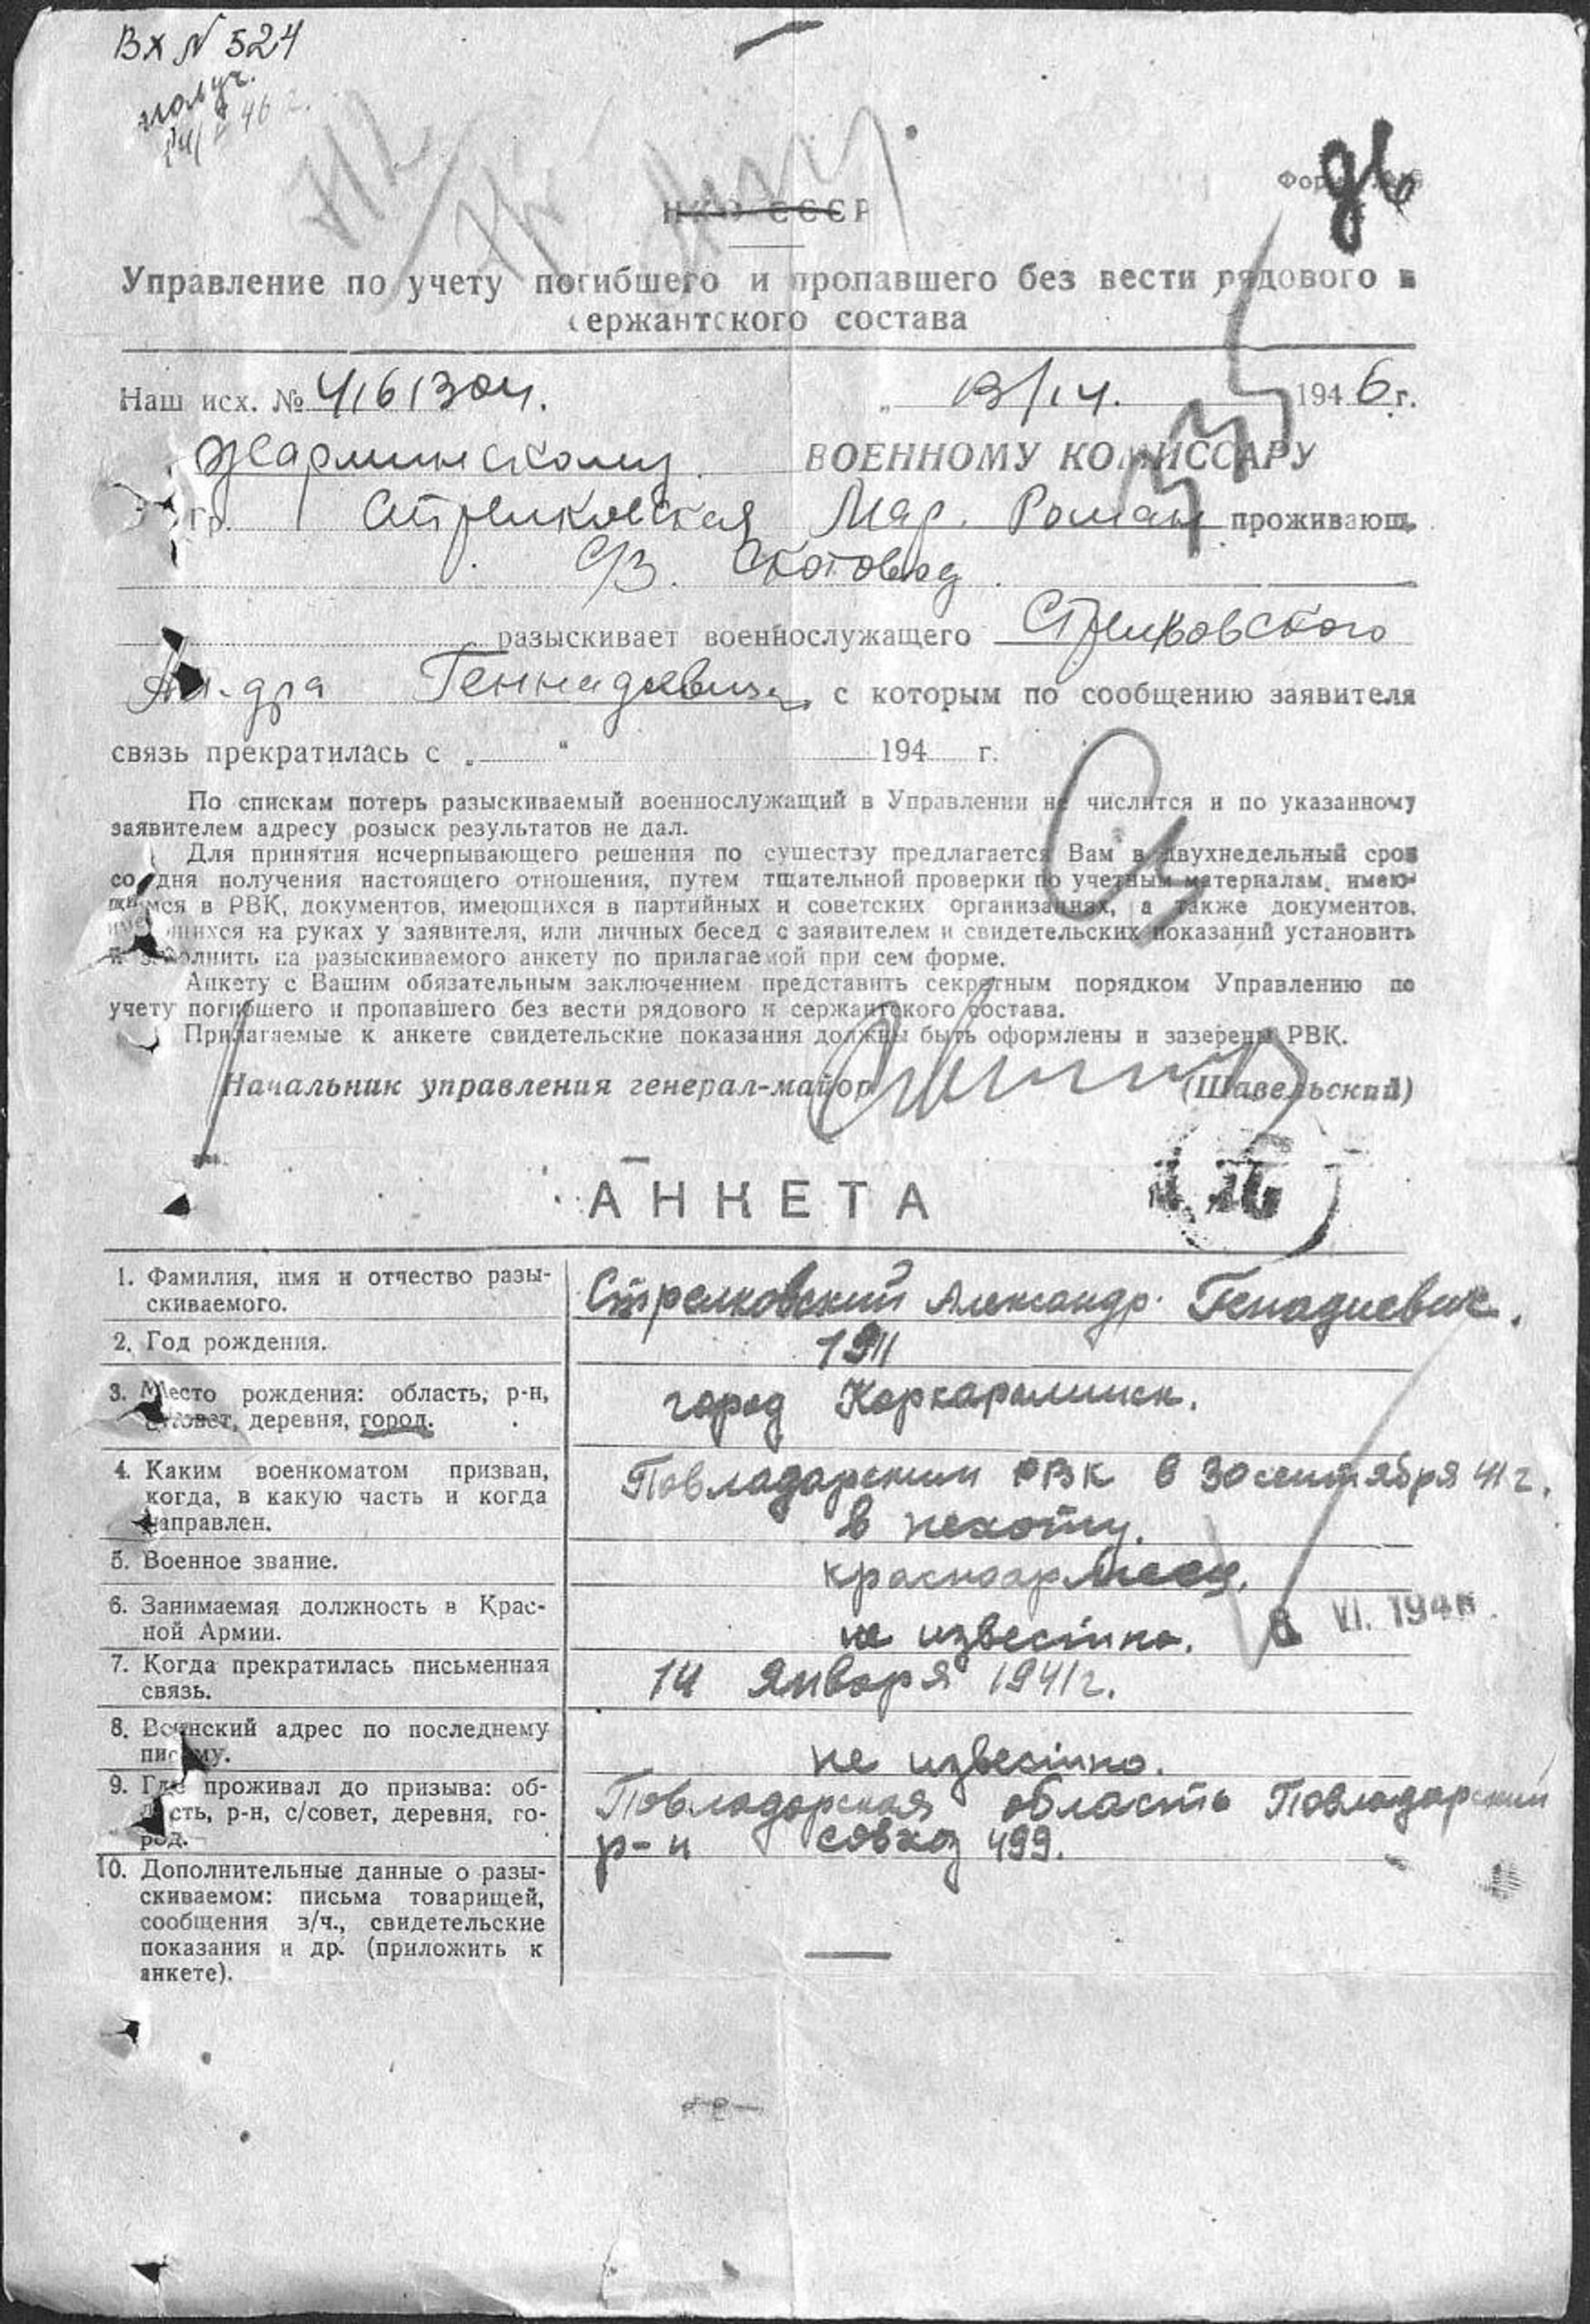 Вх № 524
получ.
НКО СССР
Управление по учету погибшего и пропавшего без вести рядового и
сержантского состава
Наш исх. № 4161304. „ 13/IV. 1946 г.
Жарминскому ВОЕННОМУ КОМИССАРУ
Гр. Стрелковская Мар. Роман проживающ.
С/З. Скотовод
разыскивает военнослужащего Стрелковского
Ал-дра Геннадиевича с которым по сообщению заявителя
связь прекратилась с „ “ 194 г.
По спискам потерь разыскиваемый военнослужащий в Управлении не числится и по указанному
заявителем адресу розыск результатов не дал.
Для принятия исчерпывающего решения по существу предлагается Вам в двухнедельный срок
со дня получения настоящего отношения, путем тщательной проверки по учетным материалам, имею-
щимся в РВК, документов, имеющихся в партийных и советских организациях, а также документов,
имеющихся на руках у заявителя, или личных бесед с заявителем и свидетельских показаний установить
и заполнить на разыскиваемого анкету по прилагаемой при сем форме.
Анкету с Вашим обязательным заключением представить секретным порядком Управлению по
учету погибшего и пропавшего без вести рядового и сержантского состава.
Прилагаемые к анкете свидетельские показания должны быть оформлены и заверены РВК.
Начальник управления генерал-майор (Шавельский)
АНКЕТА
1. Фамилия, имя и отчество разы-
скиваемого.
Стрелковский Александр Генадиевич.
2. Год рождения.
1911
3. Место рождения: область, р-н,
с/совет, деревня, город.
город Каркаралинск.
4. Каким военкоматом призван,
когда, в какую часть и когда
направлен.
Повладарским РВК в 30 сентября 41 г.
в пехоту.
5. Военное звание.
красноармеец.
6. Занимаемая должность в Крас-
ной Армии.
не известно.
VI. 1946
7. Когда прекратилась письменная
связь.
14 января 1941 г.
8. Воинский адрес по последнему
письму.
не известно.
9. Где проживал до призыва: об-
ласть, р-н, с/совет, деревня, го-
род.
Повладарская область Повладарский
р-н совхоз 499.
10. Дополнительные данные о разы-
скиваемом: письма товарищей,
сообщения з/ч., свидетельские
показания и др. (приложить к
анкете).